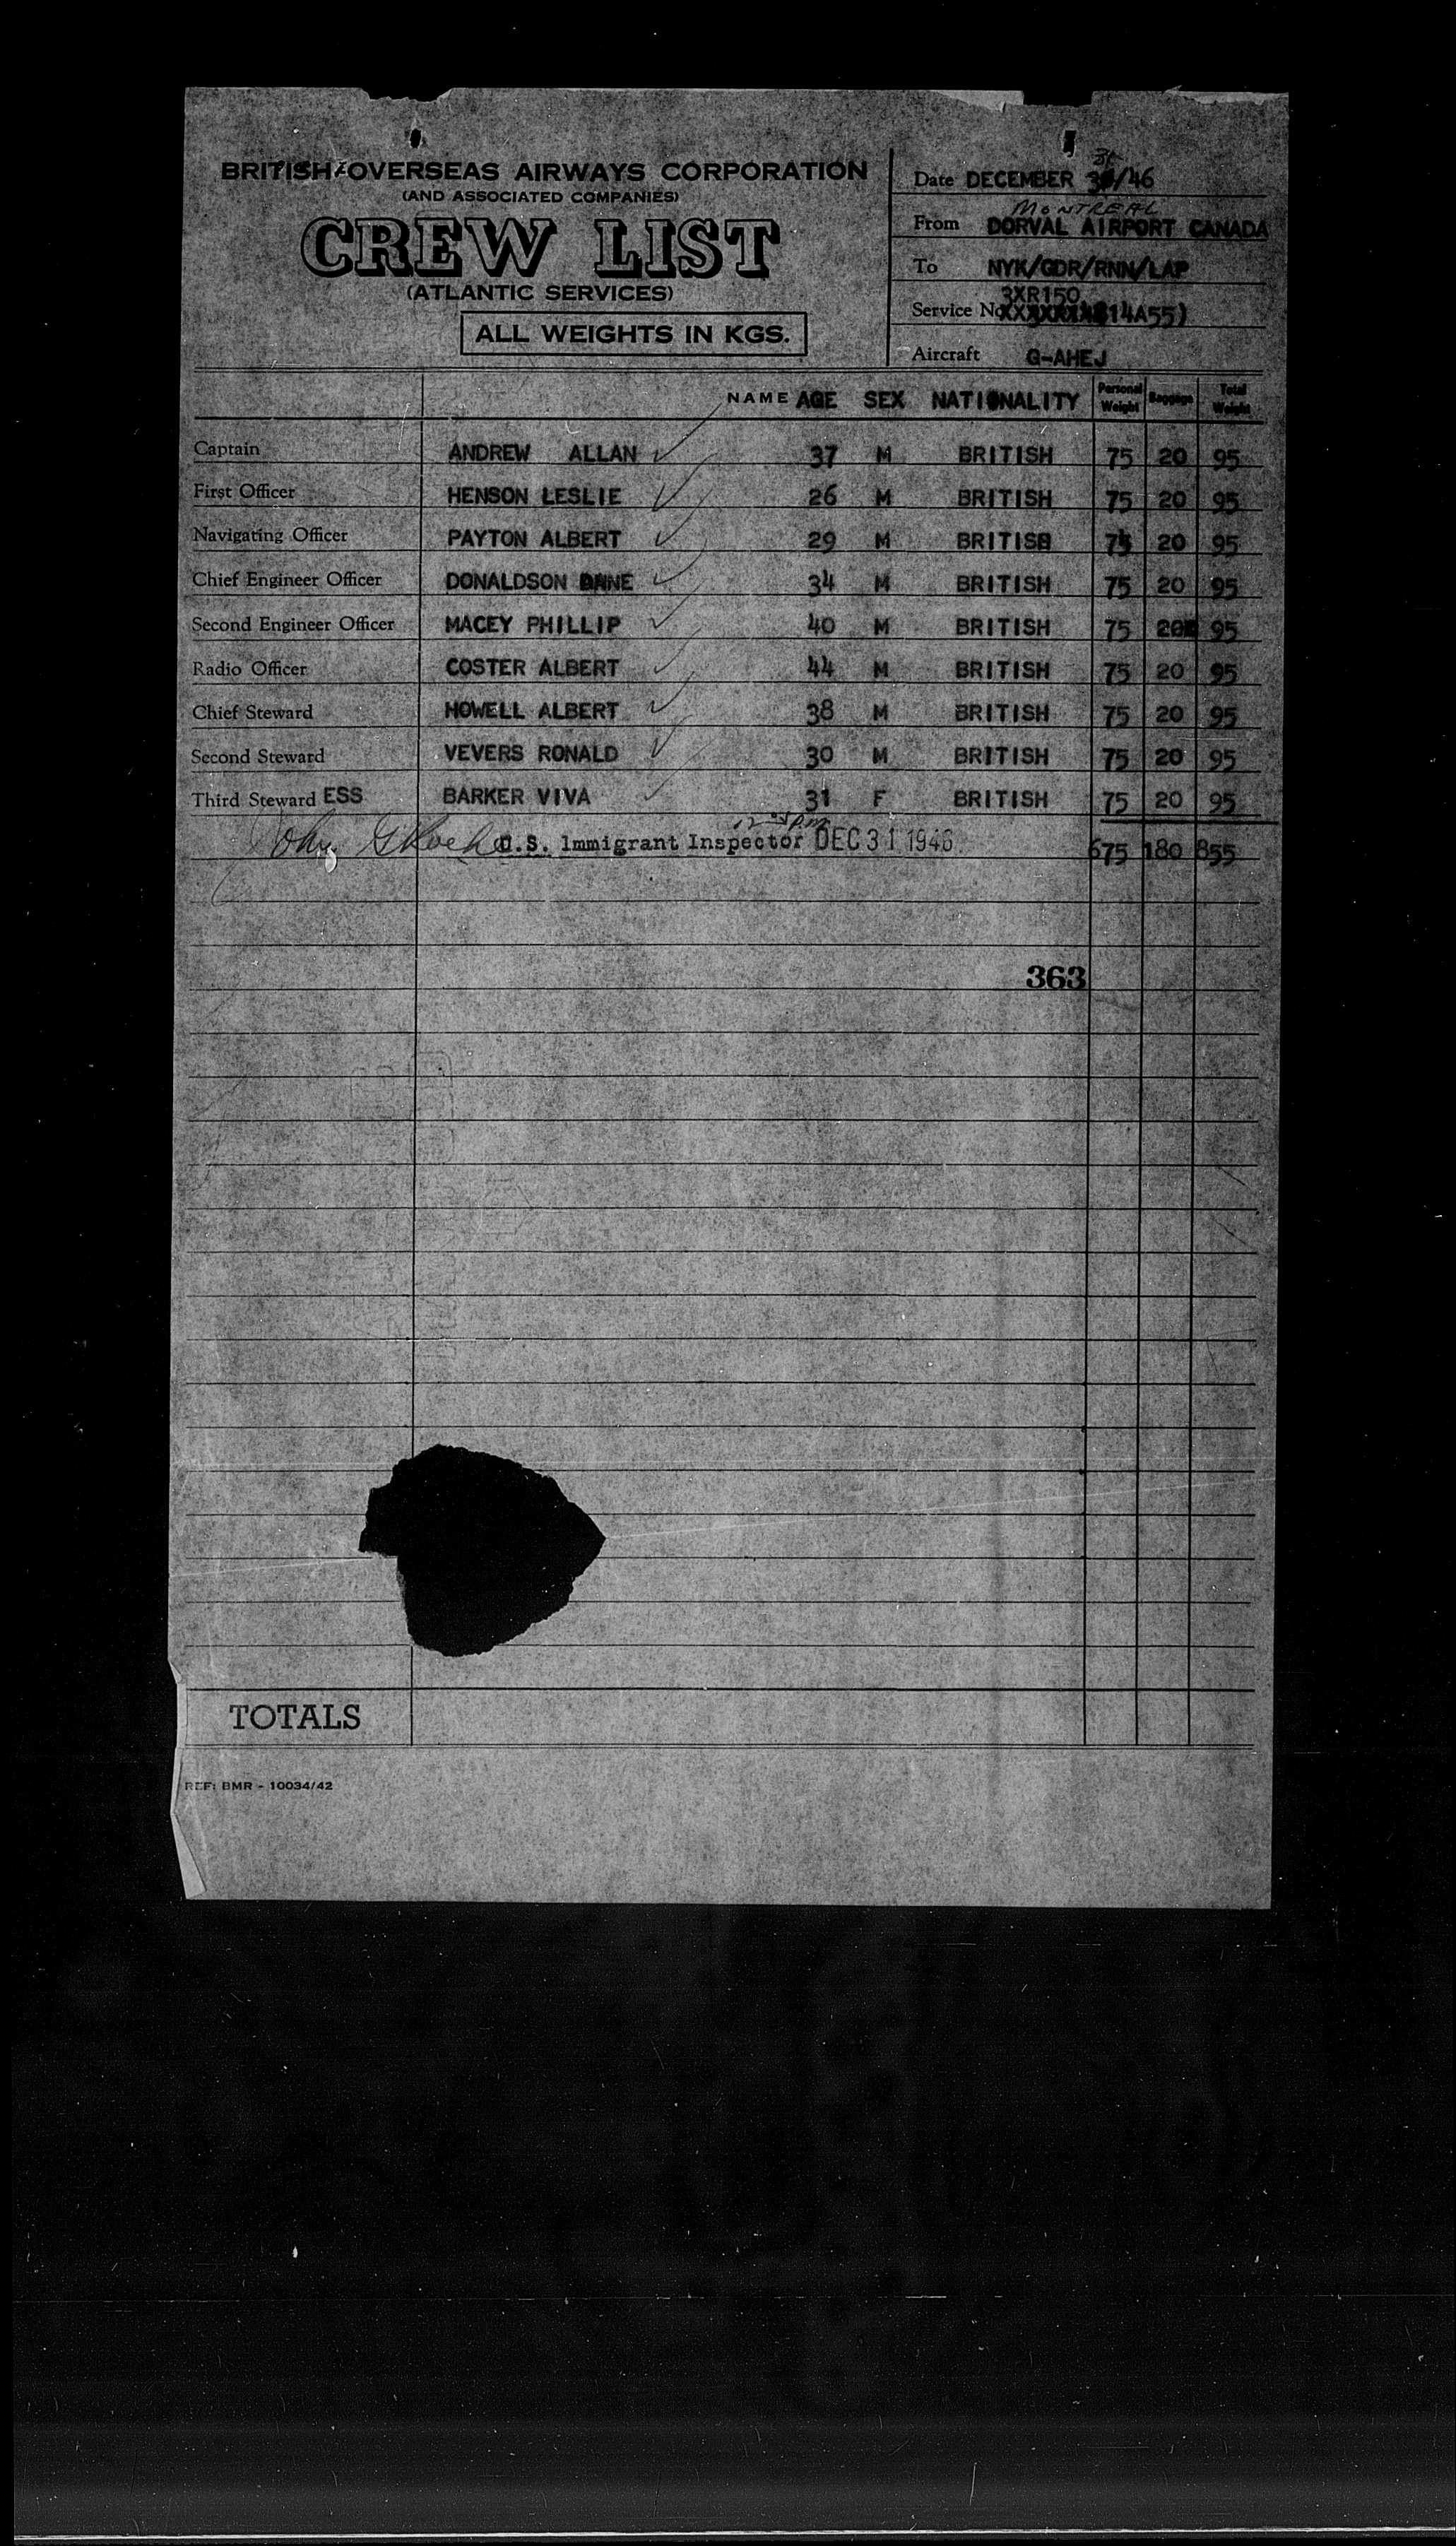 BRITISH OVERSEAS AIRWAYS CORPORATION
(AND ASSOCIATED COMPANIES)
CREW LIST
(ATLANTIC SERVICES)
ALL WEIGHTS IN KGS.
Date DECEMBER /46
MONTREAL
From DORVAL AIRPORT CANADA
To NYK/GDR/RNN/LAP
3XR150
Service No 14A55)
Aircraft G-AHEJ
NAME AGE SEX NATIONALITY Personal Weight Baggage Total Weight
Captain ANDREW ALLAN ✓ 37 M BRITISH 75 20 95
First Officer HENSON LESLIE ✓ 26 M BRITISH 75 20 95
Navigating Officer PAYTON ALBERT ✓ 29 M BRITISH 75 20 95
Chief Engineer Officer DONALDSON ✓ 34 M BRITISH 75 20 95
Second Engineer Officer MACEY PHILLIP ✓ 40 M BRITISH 75 20 95
Radio Officer COSTER ALBERT ✓ 44 M BRITISH 75 20 95
Chief Steward HOWELL ALBERT ✓ 38 M BRITISH 75 20 95
Second Steward VEVERS RONALD ✓ 30 M BRITISH 75 20 95
Third Steward ESS BARKER VIVA ✓ 31 F BRITISH 75 20 95
John G U.S. Immigrant Inspector DEC 31 1946 675 180 855
363
TOTALS
REF: BMR - 10034/42